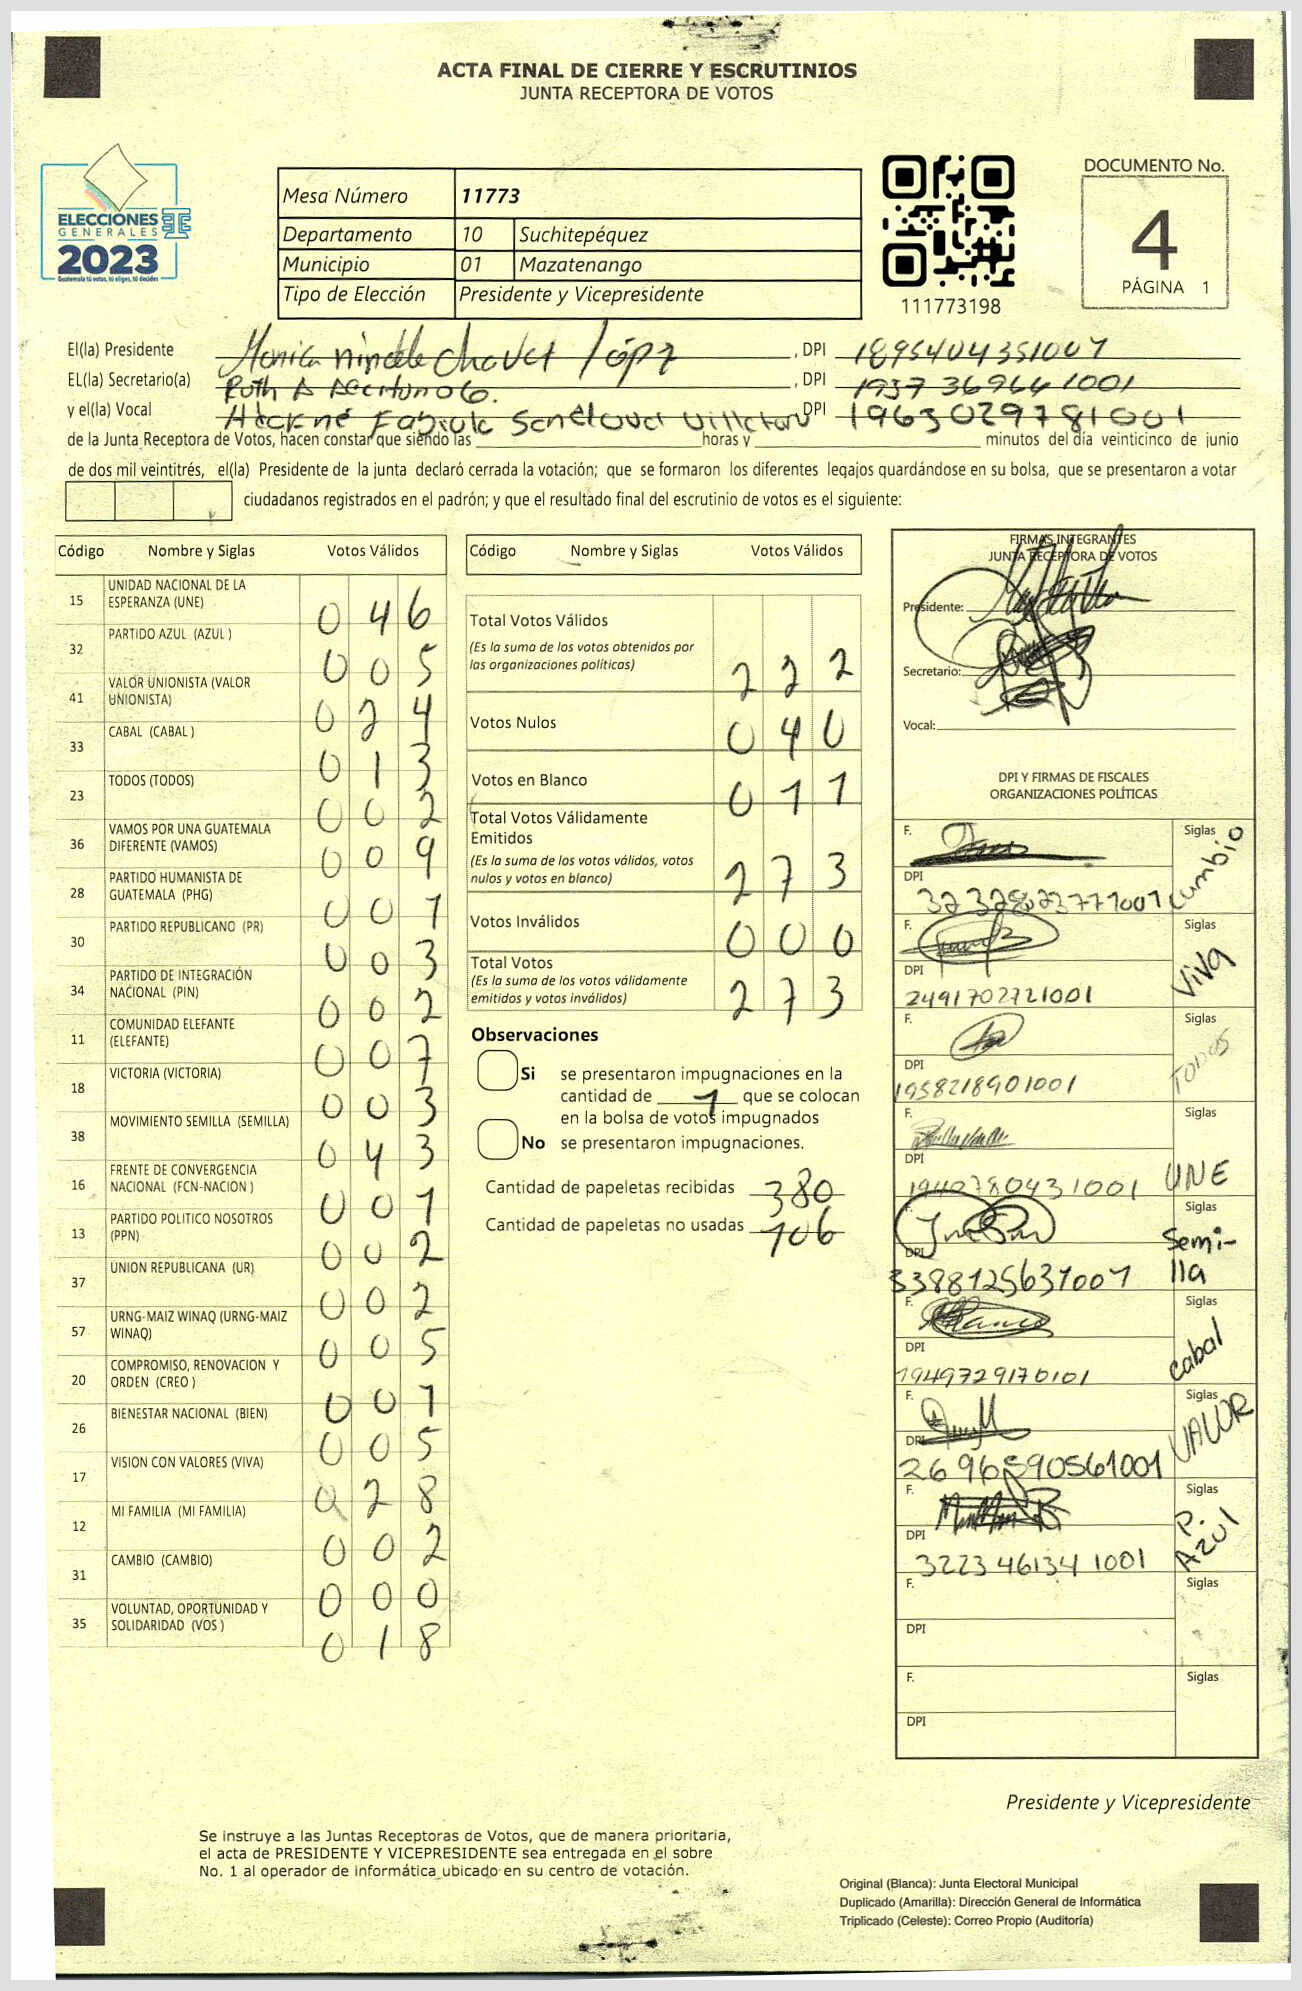 ACTA FINAL DE CIERRE Y ESCRUTINIOS
JUNTA RECEPTORA DE VOTOS
ELECCIONES
GENERALES
2023
Guatemala tú votas, tú eliges, tú decides
Mesa Número 11773
Departamento 10 Suchitepéquez
Municipio 01 Mazatenango
Tipo de Elección Presidente y Vicepresidente
111773198
DOCUMENTO No.
4
PÁGINA 1
El(la) Presidente López, DPI 1895404351001
EL(la) Secretario(a) Ruth, DPI 1937369641001
y el(la) Vocal Fabiola Sandoval, DPI 1963029781001
de la Junta Receptora de Votos, hacen constar que siendo las horas y minutos del día veinticinco de junio
de dos mil veintitrés, el(la) Presidente de la junta declaró cerrada la votación; que se formaron los diferentes legajos quardándose en su bolsa, que se presentaron a votar
ciudadanos registrados en el padrón; y que el resultado final del escrutinio de votos es el siguiente:
Código Nombre y Siglas Votos Válidos
15 UNIDAD NACIONAL DE LA
ESPERANZA (UNE) 046
32 PARTIDO AZUL (AZUL ) 005
41 VALOR UNIONISTA (VALOR
UNIONISTA) 024
33 CABAL (CABAL ) 013
23 TODOS (TODOS) 002
36 VAMOS POR UNA GUATEMALA
DIFERENTE (VAMOS) 009
28 PARTIDO HUMANISTA DE
GUATEMALA (PHG) 001
30 PARTIDO REPUBLICANO (PR) 003
34 PARTIDO DE INTEGRACIÓN
NACIONAL (PIN) 002
11 COMUNIDAD ELEFANTE
(ELEFANTE) 007
18 VICTORIA (VICTORIA) 003
38 MOVIMIENTO SEMILLA (SEMILLA) 043
16 FRENTE DE CONVERGENCIA
NACIONAL (FCN-NACION ) 001
13 PARTIDO POLITICO NOSOTROS
(PPN) 002
37 UNION REPUBLICANA (UR) 002
57 URNG-MAIZ WINAQ (URNG-MAIZ
WINAQ) 005
20 COMPROMISO, RENOVACION Y
ORDEN (CREO ) 001
26 BIENESTAR NACIONAL (BIEN) 005
17 VISION CON VALORES (VIVA) 028
12 MI FAMILIA (MI FAMILIA) 002
31 CAMBIO (CAMBIO) 000
35 VOLUNTAD, OPORTUNIDAD Y
SOLIDARIDAD (VOS ) 018
Código Nombre y Siglas Votos Válidos
Total Votos Válidos
(Es la suma de los votos obtenidos por
las organizaciones políticas) 222
Votos Nulos 040
Votos en Blanco 011
Total Votos Válidamente
Emitidos
(Es la suma de los votos válidos, votos
nulos y votos en blanco) 273
Votos Inválidos 000
Total Votos
(Es la suma de los votos válidamente
emitidos y votos inválidos) 273
Observaciones
Si se presentaron impugnaciones en la
cantidad de 1 que se colocan
en la bolsa de votos impugnados
No se presentaron impugnaciones.
Cantidad de papeletas recibidas 380
Cantidad de papeletas no usadas 106
FIRMAS INTEGRANTES
JUNTA RECEPTORA DE VOTOS
Presidente:
Secretario:
Vocal:
DPI Y FIRMAS DE FISCALES
ORGANIZACIONES POLÍTICAS
F. Siglas
DPI Cambio
F. Siglas
DPI 2491702721001 Viva
F. Siglas
DPI 1958218901001 TODOS
F. Siglas
DPI 1940780431001 UNE
F. Siglas
DPI 3388125631001 Semi-
lla
F. Siglas
DPI 1949729170101 cabal
F. Siglas
DPI 2696590561001 VALOR
F. Siglas
DPI 3223461341001 P. AZUl
F. Siglas
DPI
F. Siglas
DPI
Presidente y Vicepresidente
Se instruye a las Juntas Receptoras de Votos, que de manera prioritaria,
el acta de PRESIDENTE Y VICEPRESIDENTE sea entregada en el sobre
No. 1 al operador de informática ubicado en su centro de votación.
Original (Blanca): Junta Electoral Municipal
Duplicado (Amarilla): Dirección General de Informática
Triplicado (Celeste): Correo Propio (Auditoría)